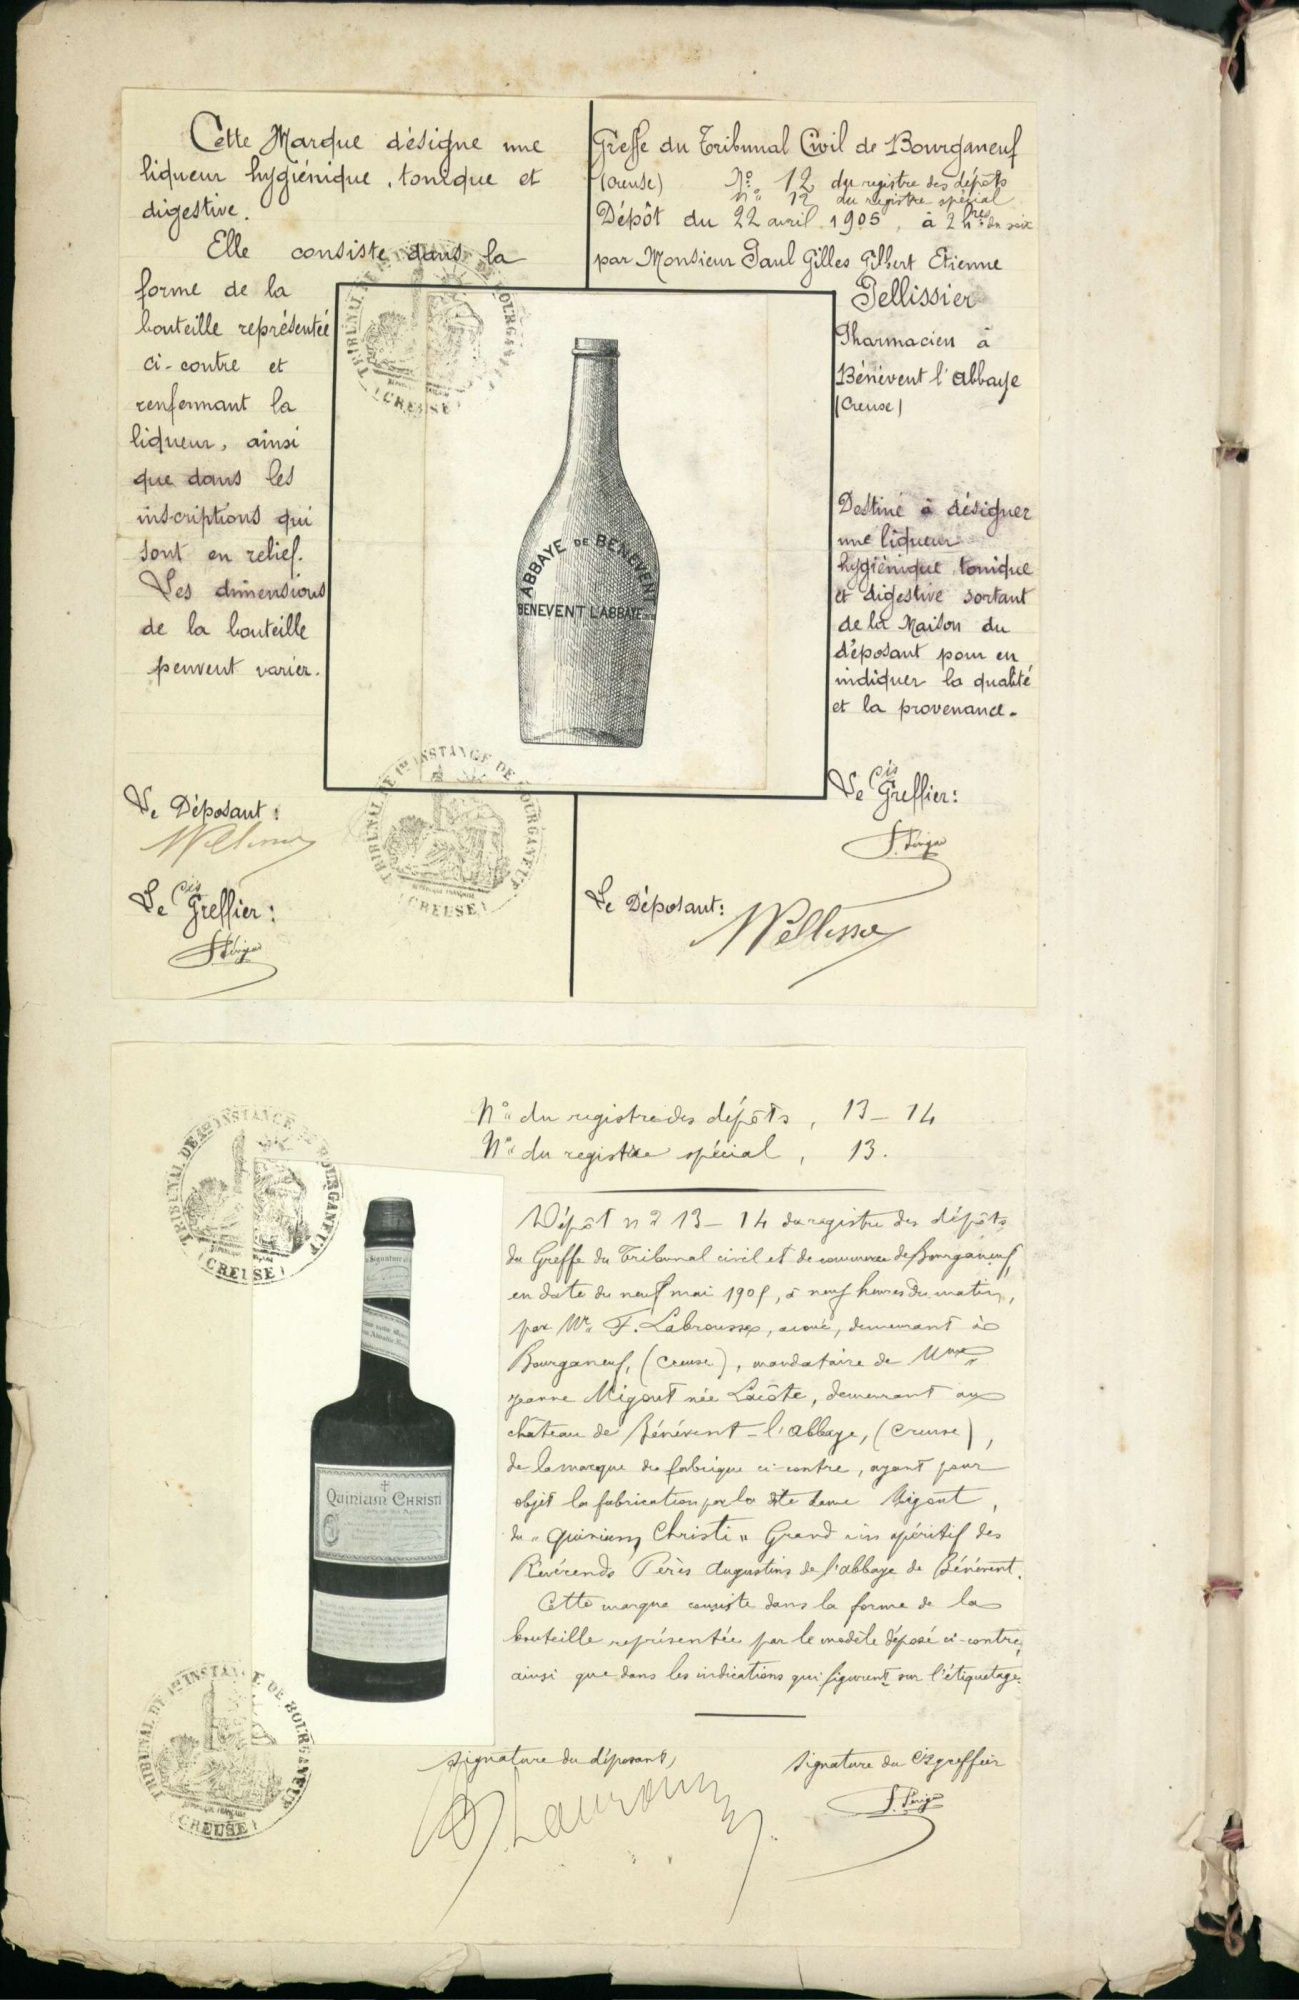 Cette Marque désigne une
liqueur hygiénique, tonique et
digestive.
Elle consiste dans la
forme de la
bouteille représentée
ci-contre et
renfermant la
liqueur, ainsi
que dans les
inscriptions qui
sont en relief.
Les dimensions
de la bouteille
peuvent varier.
Le Déposant:
Le Cis Greffier:
Greffe du Tribunal Civil de Bourganeuf
(Creuse) No. 12 du registre des dépôts
No. 12 du registre spécial
Dépôt du 22 avril 1905, à 2 hres du soir
par Monsieur Paul Gilles Gilbert Etienne
Pellissier
Pharmacien à
Bénévent l'abbaye
(Creuse)
Destiné à désigner
une liqueur
hygiénique tonique
et digestive sortant
de la Maison du
déposant pour en
indiquer la qualité
et la provenance.
Le Cis Greffier:
Le Déposant:
Pellissier
ABBAYE DE BENEVENT
BENEVENT L'ABBAYE
TRIBUNAL DE 1re INSTANCE DE BOURGANEUF
(CREUSE)
TRIBUNAL DE 1re INSTANCE DE BOURGANEUF
(CREUSE)
No. du registre des dépôts, 13-14
No. du registre spécial, 13.
Dépôt n° 13-14 du registre des dépôts
du Greffe du Tribunal civil et de commerce de Bourganeuf,
en date du neuf mai 1905, à neuf heures du matin,
par Mr. F. Labrousse, avoué, demeurant à
Bourganeuf, (Creuse), mandataire de Mme
Jeanne Migout née Lacôte, demeurant au
château de Bénévent-l'abbaye, (Creuse),
de la marque de fabrique ci-contre, ayant pour
objet la fabrication par la dite dame Migout,
du "Quinium Christi" Grand vin apéritif des
Révérends Pères Augustins de l'abbaye de Bénévent.
Cette marque consiste dans la forme de la
bouteille représentée par le modèle déposé ci-contre,
ainsi que dans les indications qui figurent sur l'étiquetage.
Signature du déposant,
Signature du Cis greffier
QUINIUM CHRISTI
TRIBUNAL DE 1re INSTANCE DE BOURGANEUF
(CREUSE)
TRIBUNAL DE 1re INSTANCE DE BOURGANEUF
(CREUSE)